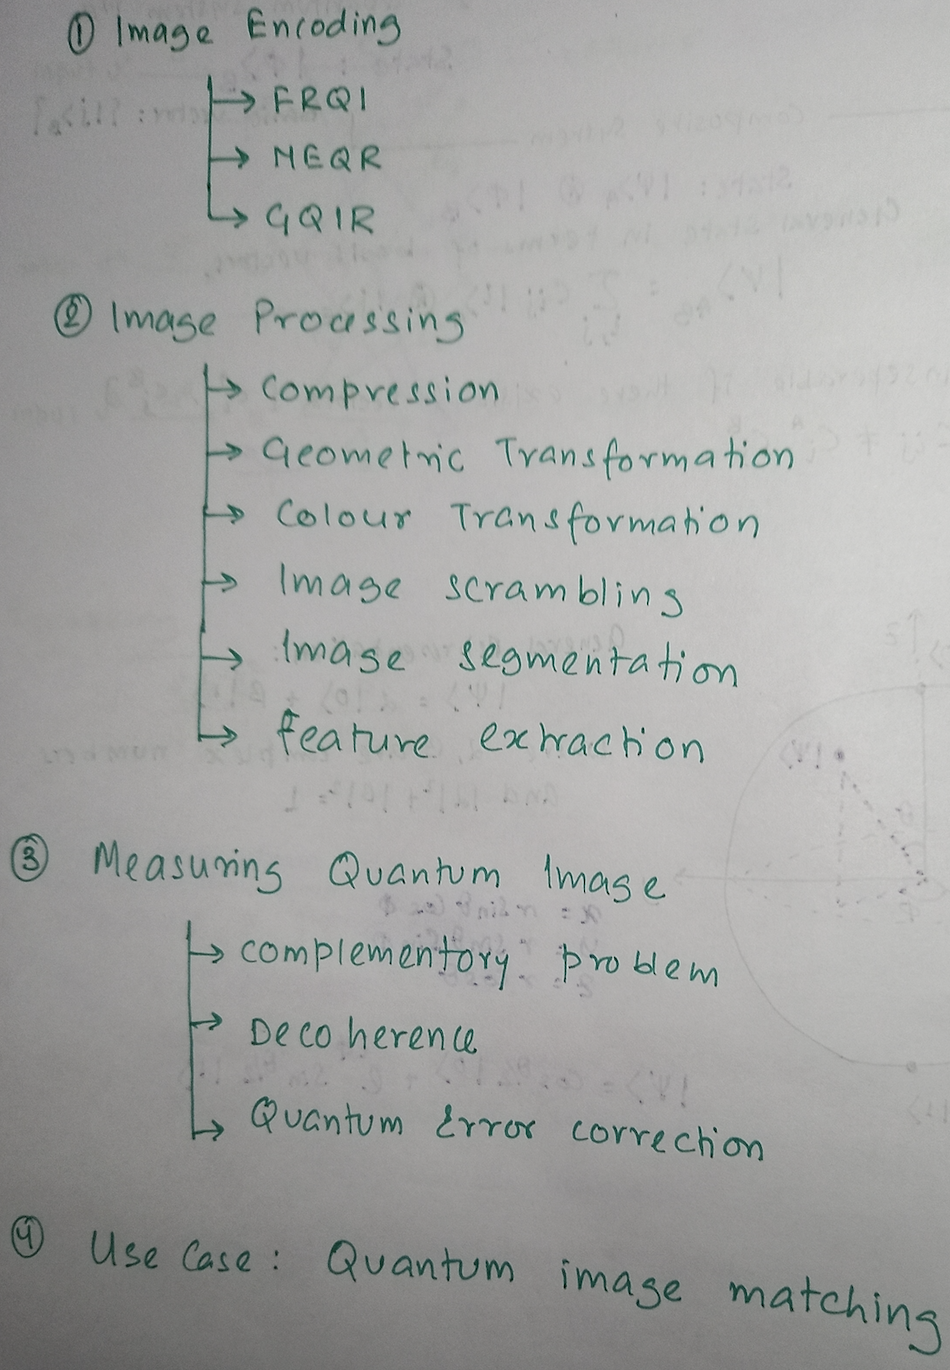 ① Image Encoding
→ FRQI
→ NEQR
→ GQIR
② Image Processing
→ Compression
→ Geometric Transformation
→ Colour Transformation
→ Image scrambling
→ Image segmentation
→ feature extraction
③ Measuring Quantum Image
→ complementory problem
→ Decoherence
→ Quantum Error correction
④ Use Case: Quantum image matching